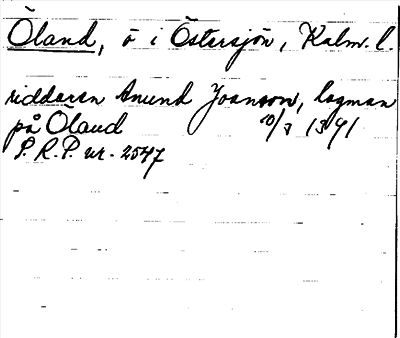 Öland, ö i Östersjön, Kalm. l.
riddaren Anund Joansson, lagman
på Öland 10/3 1391
S. R. P. nr. 2547